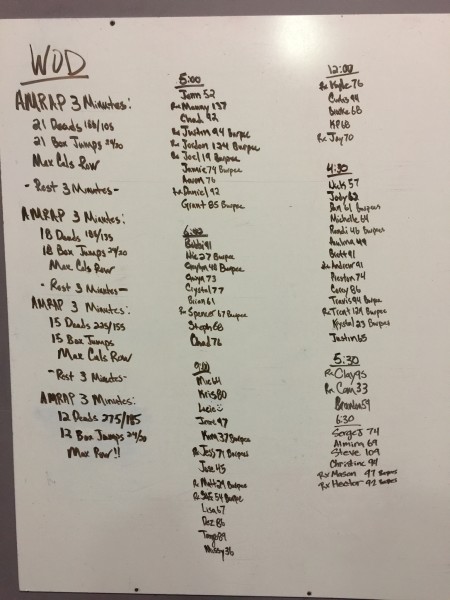 WOD
AMRAP 3 Minutes:
21 Deads 155/105
21 Box Jumps 24/20
Max Cals Row
- Rest 3 Minutes -
AMRAP 3 Minutes:
18 Deads 185/135
18 Box Jumps 24/20
Max Cals Row
- Rest 3 Minutes -
AMRAP 3 Minutes:
15 Deads 225/155
15 Box Jumps
Max Cals Row
- Rest 3 Minutes -
AMRAP 3 Minutes:
12 Deads 275/185
12 Box Jumps 24/20
Max Row!!
5:00
Jenn 52
Rx Manny 137
Chad 92
Rx Justin 94 Burpee
Rx Jordon 124 Burpee
Rx Joel 19 Burpee
Jamie 74 Burpee
Aaron 76
Rx Daniel 92
Grant 85 Burpee
Bobbi 91
27 Burpee
48 Burpee
73
Crystal 77
Brian 61
Rx Spencer 67 Burpee
Steph 68
Chad 76
9:00
64
Kris 80
97
Kim 37 Burpees
Rx Jess 71 Burpees
Jose 45
Rx Matt 29 Burpees
Rx 54 Burpee
Lisa 67
Dez 86
89
Missy 36
12:00
Rx Kyle 76
Curtis 94
68
KP 68
Rx Jay 70
4:30
Nick 57
Jody 62
61 Burpees
Michelle 64
Randi 46 Burpees
49
Brett 91
Rx Andrew 91
Preston 74
Corey 86
Travis 94 Burpee
Rx Trent 129 Burpee
Krystal 23 Burpees
Justin 65
5:30
Rx Clay 95
Rx Cam 33
Brandon 59
6:30
Serge J 74
Almira 69
Steve 109
Christine 94
Rx Mason 97 Burpees
Rx Hector 92 Burpees